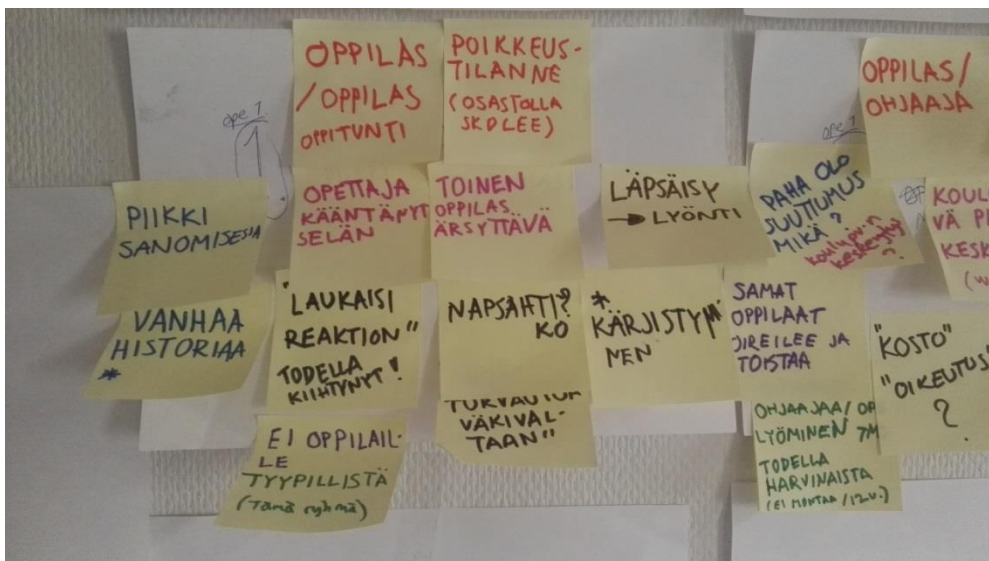 OPPILAS
/OPPILAS
OPPITUNTI
POIKKEUS-
TILANNE
(OSASTOLLA
SKOLEE)
OPPILAS/
OHJAAJA
ope 1
1.
ope 1
PIIKKI
SANOMISESTA
OPETTAJA
KÄÄNTÄNYT
SELÄN
TOINEN
OPPILAS
ÄRSYTTÄVÄ
LÄPSÄISY
→ LYÖNTI
PAHA OLO
SUUTTUMUS
MIKÄ?
koulupäivän
keskeytys
?
KOUL
VÄ PÄ
KESK
VANHAA
HISTORIAA
*
"LAUKAISI
REAKTION"
TODELLA
KIIHTYNYT!
NAPSAHTI?
KO
*
KÄRJISTYMI
NEN
SAMAT
OPPILAAT
OIREILEE JA
TOISTAA
"KOSTO"
"OIKEUTUS
?
EI OPPILAIL-
LE
TYYPILLISTÄ
(Tämä ryhmä)
VÄKIVAL-
TAAN"
OHJAAJAA/ OP
LYÖMINEN TM
TODELLA
HARVINAISTA
(EI MONTAA /12v.)